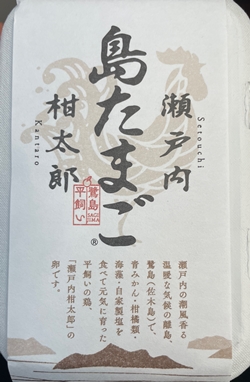 瀬戸内
Setouchi
島たまご®
柑太郎
Kantaro
鷺島
SAGI
平飼い
瀬戸内の潮風香る
温暖な気候の離島、
鷺島（佐木島）で、
青みかん・柑橘類・
海藻・自家製塩を
食べて元気に育った
平飼いの鶏、
「瀬戸内柑太郎」の
卵です。